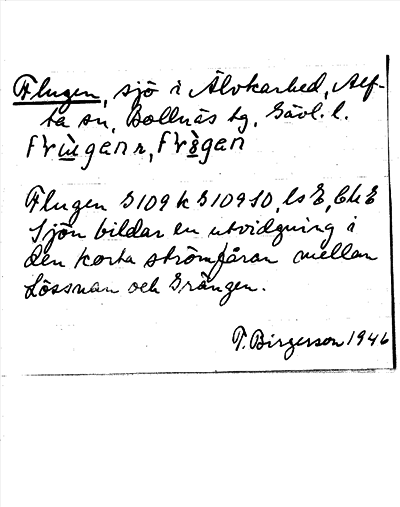 Flugen, sjö i Älvkarhed, Alf-
ta sn, Bollnäs tg, Gävl. l.
Flugen G109 k G109 SO, ls E, bk E
Sjön bildar en utvidgning i
den korta strömfåran mellan
Lössnan och Grängen.
T. Birgerson 1946